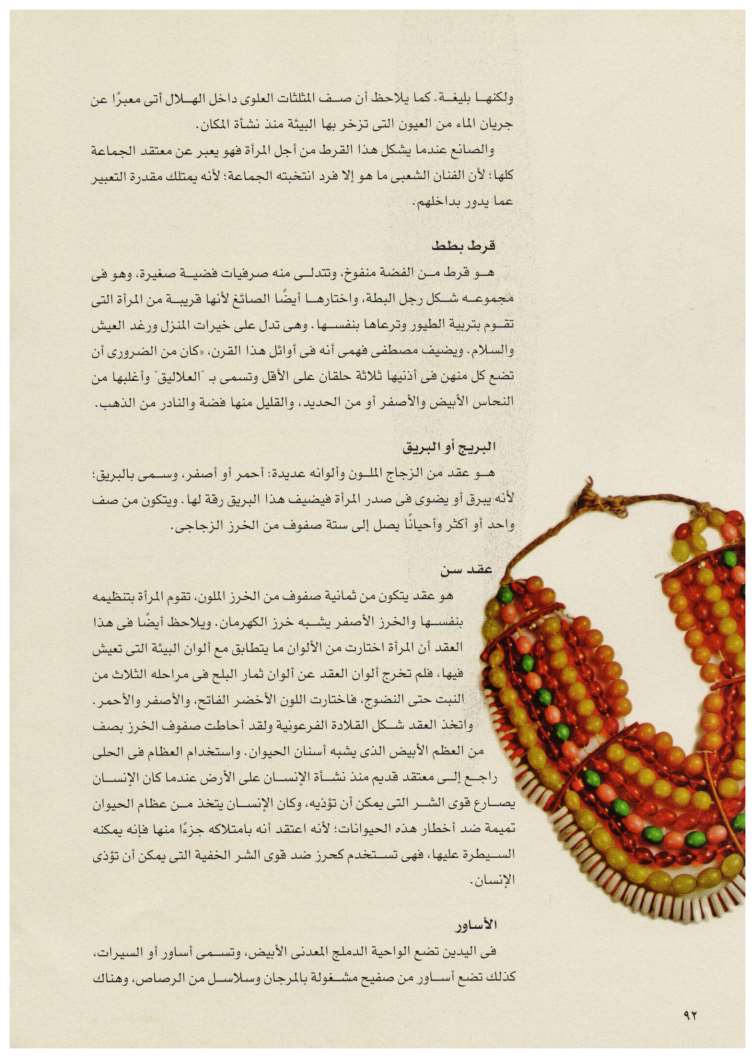 ولكنهـا بليغـة. كما يلاحظ أن صـف المثلثات العلوى داخل الهـلال أتى معبرًا عن
جريان الماء من العيون التى تزخر بها البيئة منذ نشأة المكان.
والصانع عندما يشكل هذا القرط من أجل المرأة فهو يعبر عن معتقد الجماعة
كلها؛ لأن الفنان الشعبى ما هو إلا فرد انتخبته الجماعة؛ لأنه يمتلك مقدرة التعبير
عما يدور بداخلهم.
قرط بطط
هـو قرط مـن الفضة منفوخ، وتتدلـى منه صرفيات فضيـة صغيرة، وهو فى
مجموعـه شـكل رجل البطة، واختارهـا أيضًا الصائغ لأنها قريبـة من المرأة التى
تقـوم بتربية الطيور وترعاها بنفسـها. وهى تدل على خيرات المنزل ورغد العيش
والسلام. ويضيف مصطفى فهمى أنه فى أوائل هذا القرن، «كان من الضرورى أن
تضع كل منهن فى أذنيها ثلاثة حلقان على الأقل وتسمى بـ "العلاليق" وأغلبها من
النحاس الأبيض والأصفر أو من الحديد، والقليل منها فضة والنادر من الذهب.
البريج أو البريق
هـو عقد من الزجاج الملـون وألوانه عديدة: أحمر أو أصفر، وسـمى بالبريق؛
لأنه يبرق أو يضوى فى صدر المرأة فيضيف هذا البريق رقة لها. ويتكون من صف
واحد أو أكثر وأحيانًا يصل إلى ستة صفوف من الخرز الزجاجى.
عقـد سن
هو عقد يتكون من ثمانية صفوف من الخرز الملون، تقوم المرأة بتنظيمه
بنفسـها والخرز الأصفر يشـبه خرز الكهرمان. ويلاحظ أيضًا فى هذا
العقد أن المرأة اختارت من الألوان ما يتطابق مع ألوان البيئة التى تعيش
فيها، فلم تخرج ألوان العقد عن ألوان ثمار البلح فى مراحله الثلاث من
النبت حتى النضوج، فاختارت اللون الأخضر الفاتح، والأصفر والأحمر.
واتخذ العقد شـكل القلادة الفرعونية ولقد أحاطت صفوف الخرز بصف
من العظم الأبيض الذى يشبه أسنان الحيوان. واستخدام العظام فى الحلى
راجـع إلـى معتقد قديم منذ نشـأة الإنسـان على الأرض عندما كان الإنسـان
يصـارع قوى الشـر التى يمكن أن تؤذيه، وكان الإنسـان يتخذ مـن عظام الحيوان
تميمة ضد أخطار هذه الحيوانات؛ لأنه اعتقد أنه بامتلاكه جزءًا منها فإنه يمكنه
السـيطرة عليها، فهى تسـتخدم كحرز ضد قوى الشر الخفية التى يمكن أن تؤذى
الإنسان.
الأساور
فى اليدين تضع الواحية الدملج المعدنى الأبيض، وتسـمى أساور أو السيرات،
كذلك تضع أسـاور من صفيح مشـغولة بالمرجان وسلاسـل من الرصاص، وهناك
٩٢